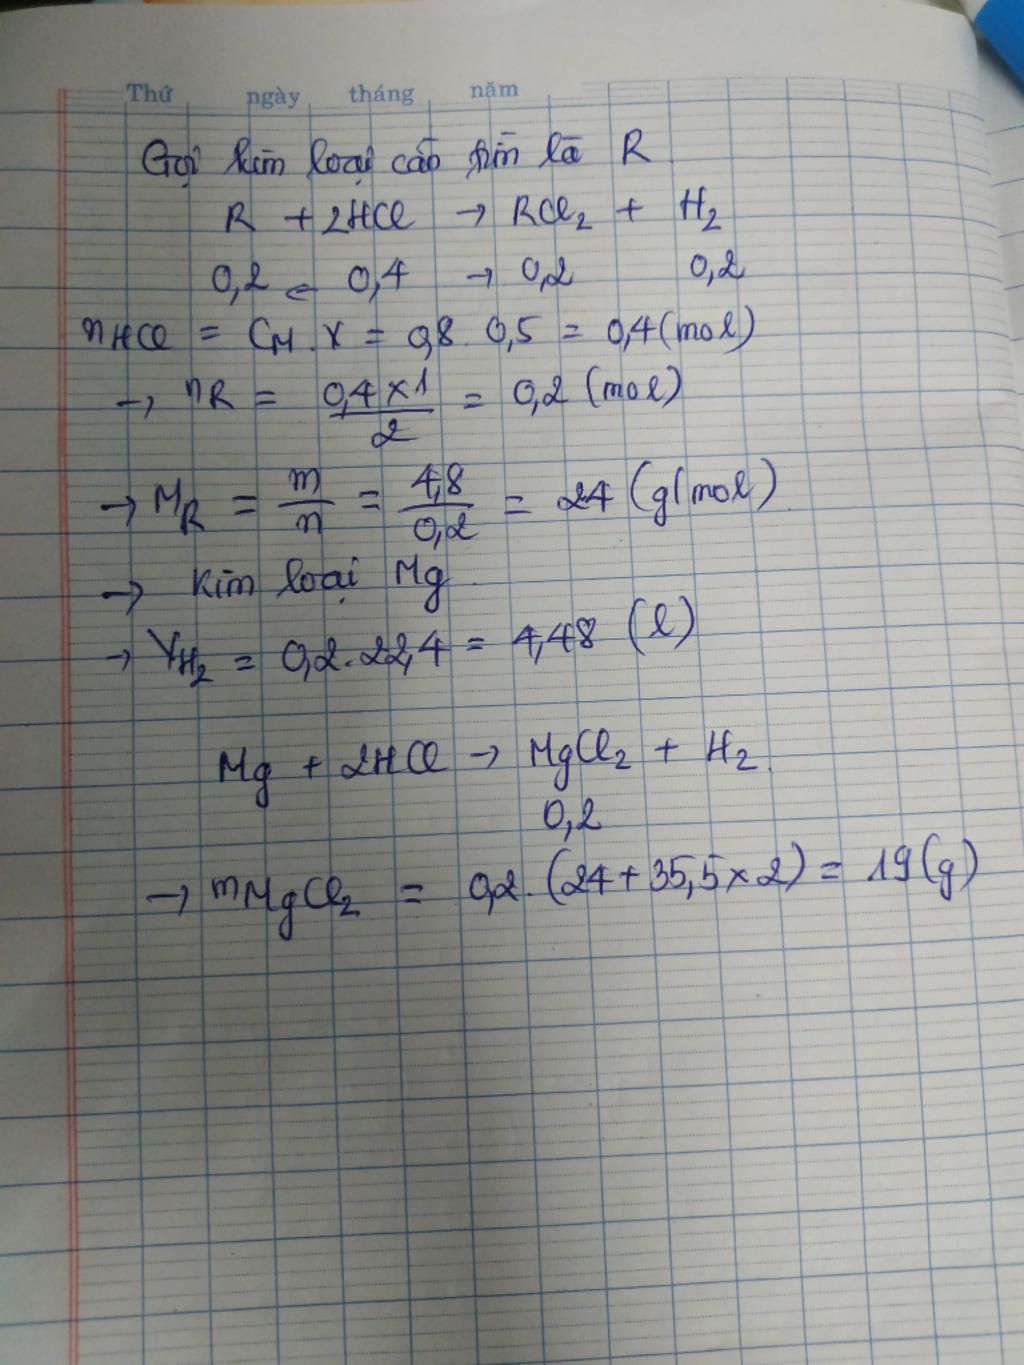 Thứ ngày tháng năm
Gọi kim loại cần tìm là R
R + 2HCl → RCl₂ + H₂
0,2 ← 0,4 → 0,2 0,2
nHCl = CM . V = 0,8 . 0,5 = 0,4 (mol)
→ nR = (0,4 × 1)/2 = 0,2 (mol)
→ MR = m/n = 4,8/0,2 = 24 (g/mol)
→ Kim loại Mg
→ VH₂ = 0,2 . 22,4 = 4,48 (l)
Mg + 2HCl → MgCl₂ + H₂
0,2
→ mMgCl₂ = 0,2 . (24 + 35,5 × 2) = 19 (g)